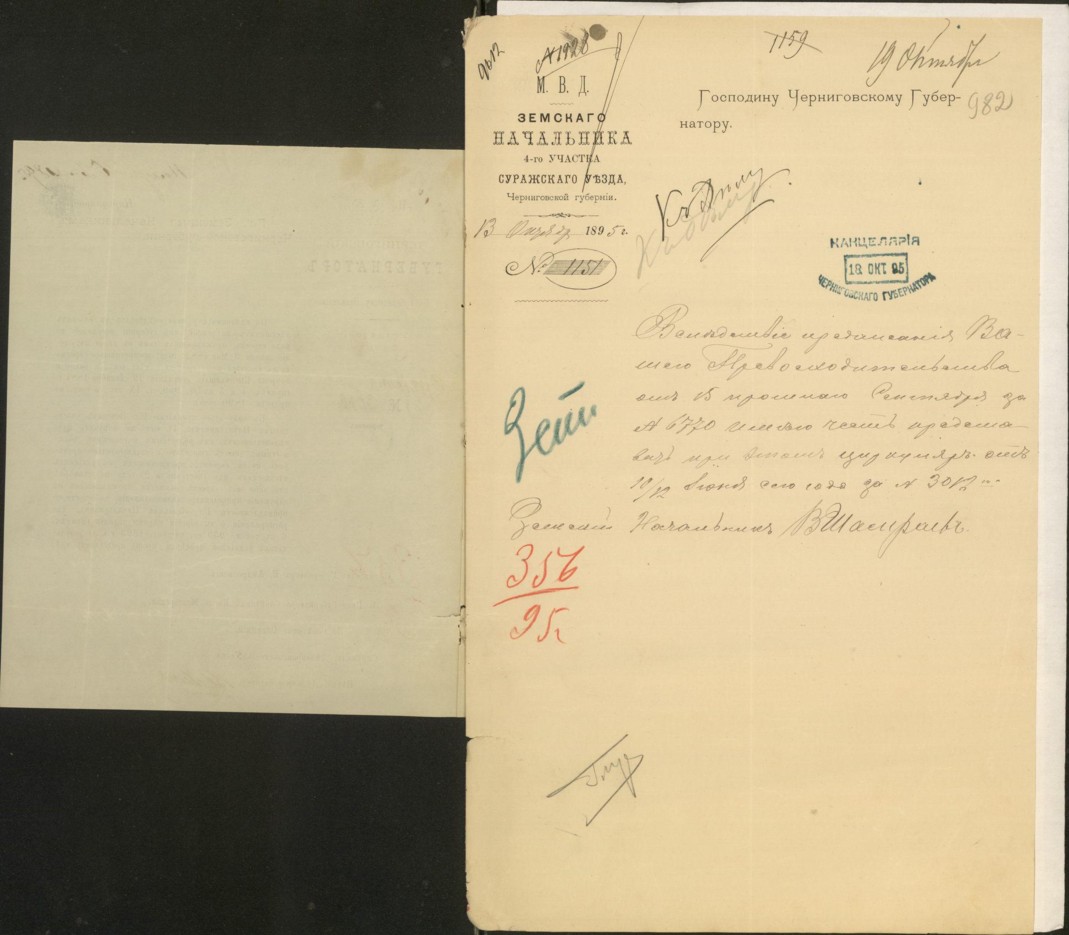 9612
№ 1928
1159
19 Октября
982
М. В. Д.
ЗЕМСКАГО
НАЧАЛЬНИКА
4-го УЧАСТКА
СУРАЖСКАГО УѢЗДА,
Черниговской губерніи.
13 Октября 1895 г.
№ 1151
Господину Черниговскому Губер-
натору.
Къ дѣлу
КАНЦЕЛЯРІЯ
18 ОКТ 95
ЧЕРНИГОВСКАГО ГУБЕРНАТОРА
Вслѣдствіе предписанія Ва-
шего Превосходительства
отъ 15 прошлаго Сентября за
№ 6770 имѣю честь предста-
вить при этомъ циркуляръ отъ
10/12 Июня сего года за № 3012
Земскій Начальникъ
356
95 г